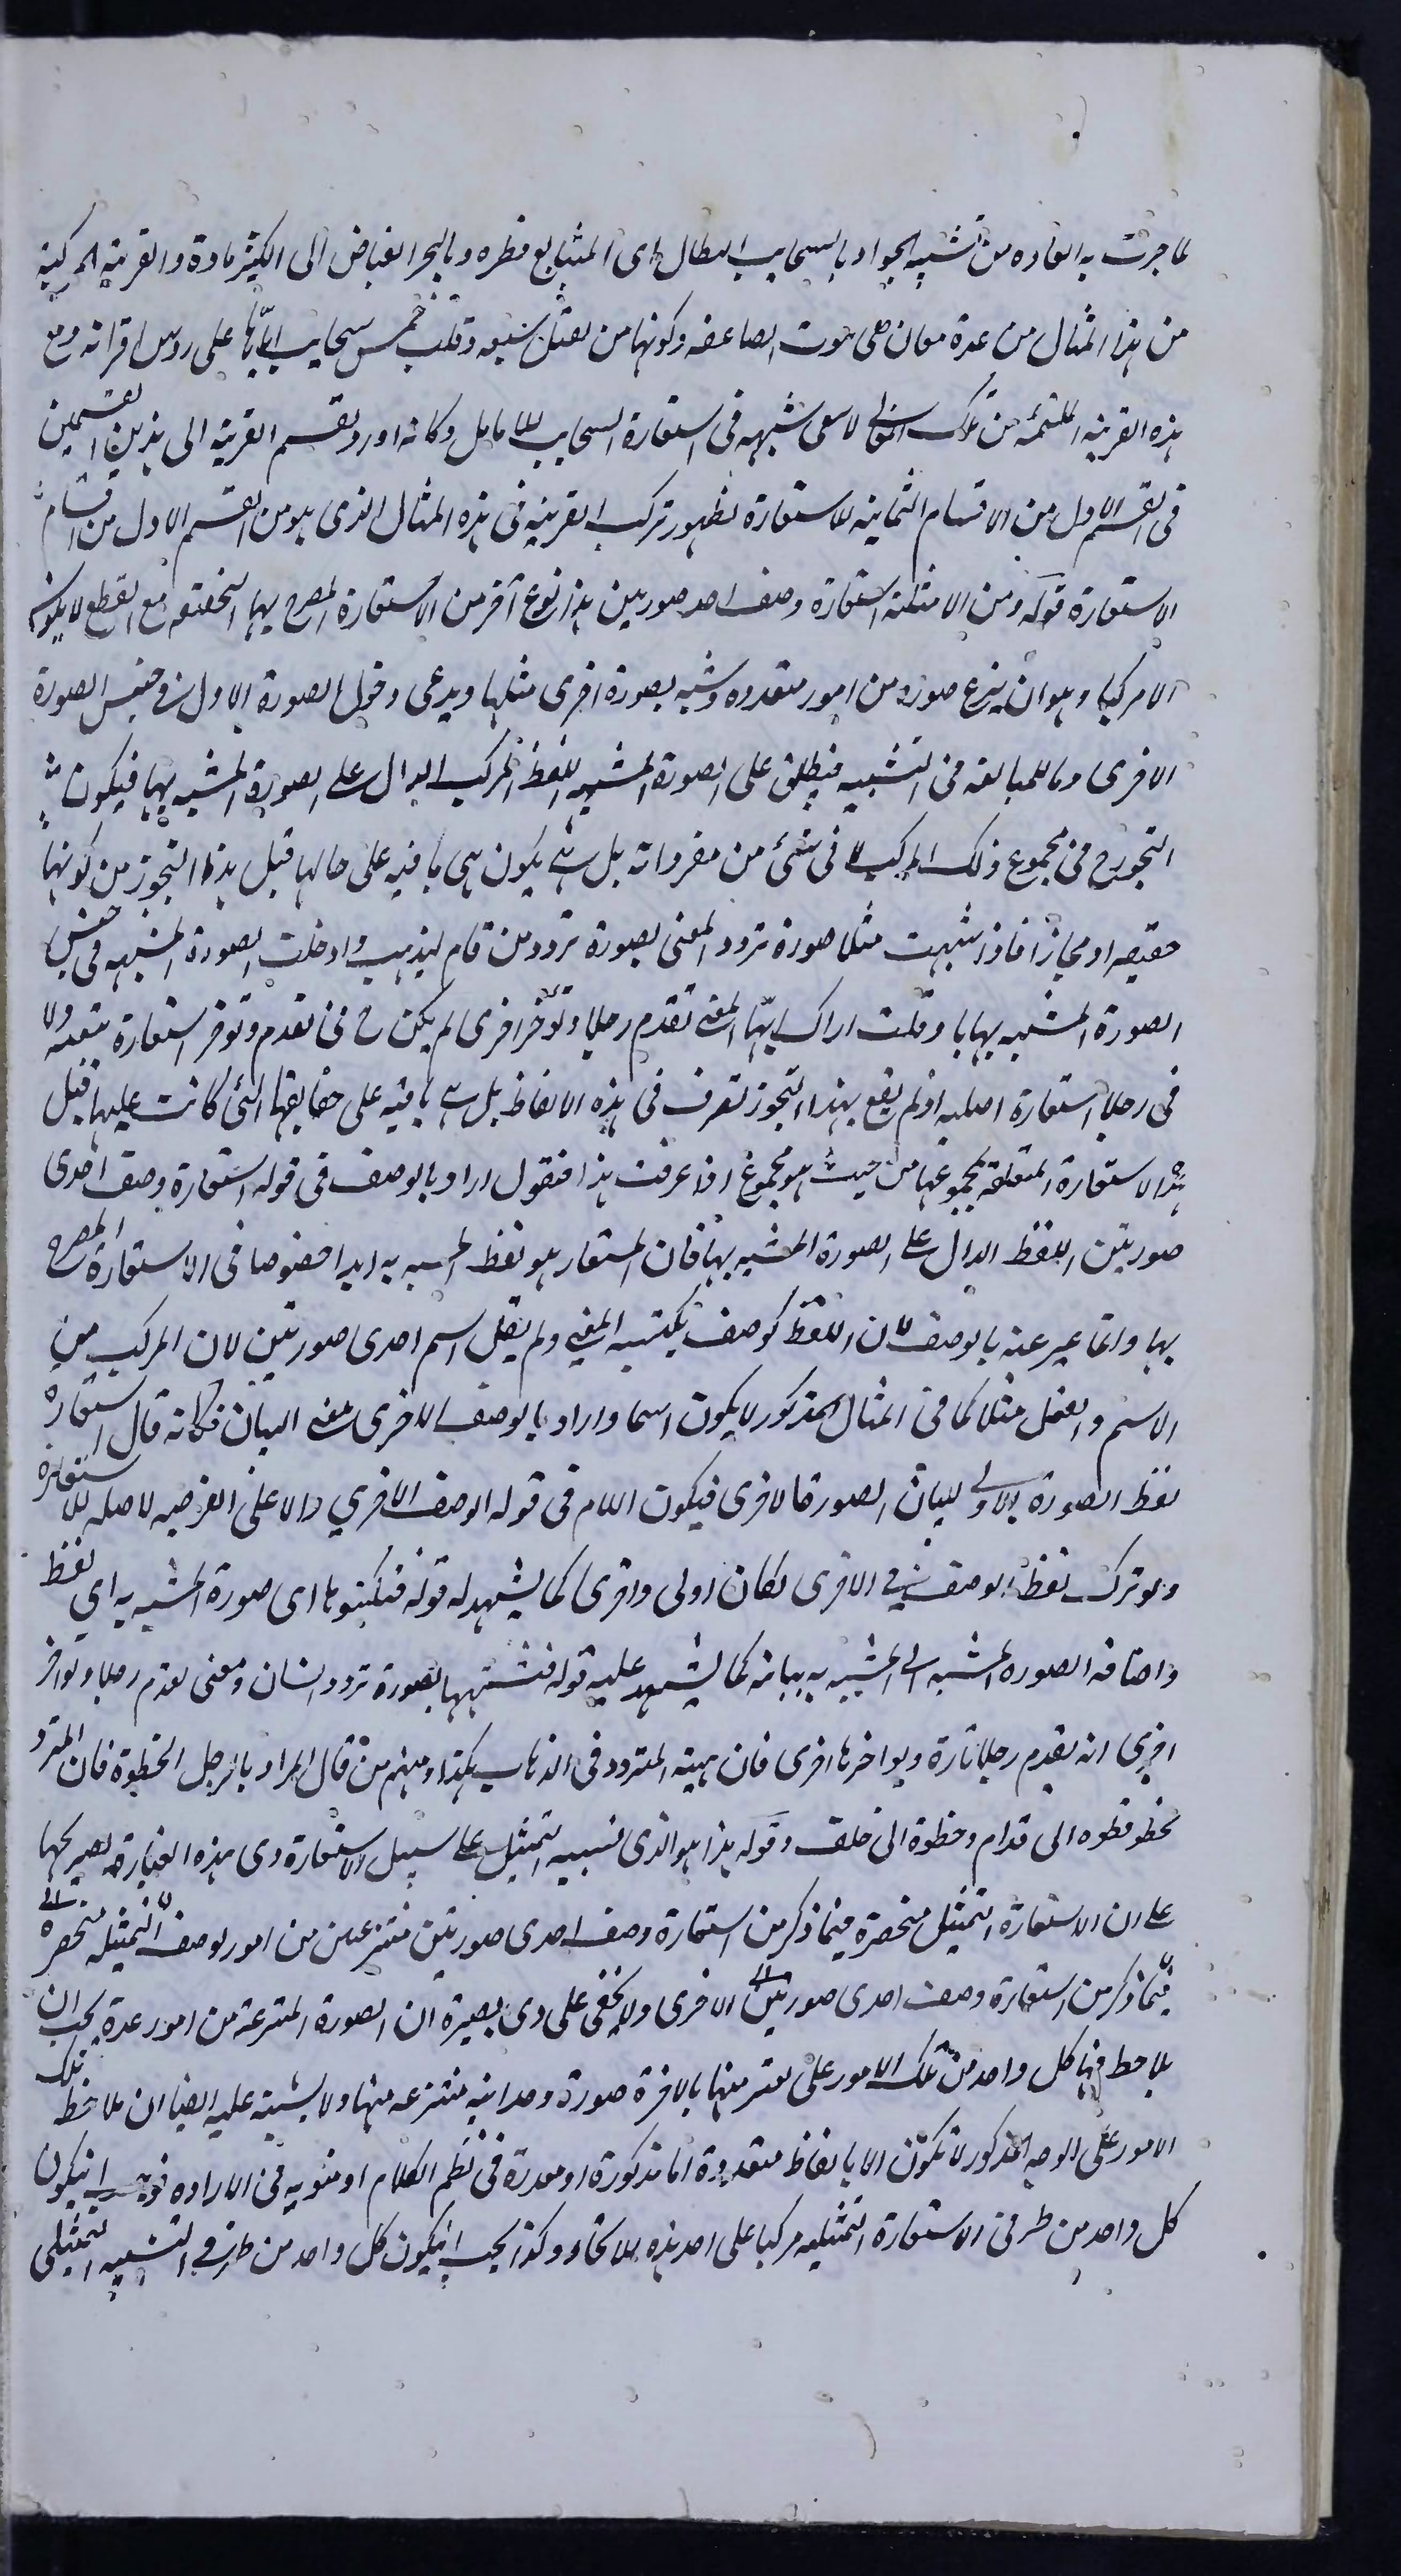 لما جرت به العاده من تشبيه الجواد بالسحاب الهطال اى المتتابع قطره وبالبحر الفياض اى الكثير مادة والقرينة المركبة
من هذا المثال من عدة معان هى موت الصاعقه وكونها من نصل سيفه وقلب خمس سحايب اياها على روس اقرانه ومع
هذه القرينه الملتئمه من تلك المعانى لا سعى شبهه فى استعارة السحايب للانامل وكانه اورد تقسم القرينة الى هذين القسمين
فى القسم الاول من الاقسام الثمانيه للاستعارة لظهور تركب القرينه فى هذه المثال الذى هو من القسم الاول من اقسام
الاستعارة قوله ومن الامثلة استعارة وصف احد صورتين هذا نوع آخر من الاستعارة المصرح بها التحققيه مع القطع لا يكون
الا مركبا وهو ان ينزع صوره من امور متعدده وشبه بصورة اخرى مثلها ويدعى دخول الصورة الاولى فى جنس الصورة
الاخرى وما للمبالغه فى التشبيه فيطلق على الصورة المشبهه اللفظ المركب الدال على الصورة المشبه بها فيكون
التجوز ح فى مجموع ذلك المركب لا فى شئ من مفرداته بل هى يكون هى باقيه على حالها قبل هذا التجوز من كونها
حقيقه او مجازا فاذا شبهت مثلا صورة تردد المفتى بصورة تردد من قام ليذهب وادخلت الصورة المشبهه فى جنس
الصورة المشبه بها وقلت اراك ايها المفتى تقدم رجلا وتؤخر اخرى لم يكن ح فى تقدم وتوخر استعارة تبعيه ولا
فى رجلا استعارة اصليه اذ لم يقع بهذا التجوز تصرف فى هذه الالفاظ بل هى باقيه على حقايقها التى كانت عليها قبل
هذه الاستعارة المتعلقه بمجموعها من حيث هو مجموع اذا عرفت هذا فنقول اراد بالوصف فى قوله استعارة وصف احدى
صورتين اللفظ الدال على الصورة المشبه بها فان المستعار هو لفظ المشبه به ابدا خصوصا فى الاستعارة المصرح
بها وانما عبر عنه بالوصف لان اللفظ كوصف يكتسبه المعنى ولم يقل اسم احدى صورتين لان المركب من
الاسم والفعل مثلا كما فى المثال المذكور لا يكون اسما واراد بالوصف الاخرى معنى البيان فكانه قال استعارة
لفظ الصورة الاولى لبيان الصورة الاخرى فيكون اللام فى قوله الوصف الاخرى دالا على الغرضيه لا صله للاستعارة
ولو ترك لفظ الوصف فى الاخرى لكان اولى واحرى كما يشهد له قوله فتكسوها اى صورة المشبه به اى لفظ
واضافه الصوره المشبه الى المشبه به بيانيه كما يشهد عليه قوله فتشبهها بصورة تردد انسان ومعنى يقدم رجلا ويواخر
اخرى انه يقدم رجلا تارة ويواخرها اخرى فان هيئه المتردد فى الذهاب هكذا ومنهم من قال المراد بالرجل الخطوة فان المتردد
يخطو خطوه الى قدام وخطوة الى خلف وقوله هذا هو الذى نسميه التمثيل على سبيل الاستعارة وى هذه العبارة تصريحها
على ان الاستعارة التمثيل منحصرة فيما ذكر من استعارة وصف احدى صورتين منتزعتين من امور لوصف التمثيليه منحصرة
فيما ذكر من استعارة وصف احدى صورتين الاخرى ولا يخفى على ذى بصيرة ان الصورة المنتزعة من امور عدة يجب ان
يلاحظ فيها كل واحد من تلك الامور على منها بالاخرة صورة وحدانيه منتزعه منها ولا يشتبه عليه ايضا ان ملاحظه تلك
الامور على الوجه المذكور لا تكون الا بالفاظ متعددة اما مذكورة او مقدرة فى نظم الكلام او منويه فى الاراده فوجب ان يكون
كل واحد من طرفى الاستعارة التمثيليه مركبا على احد هذه الانحاء وكذا يجب ان يكون كل واحد من طرفى التشبيه التمثيلى